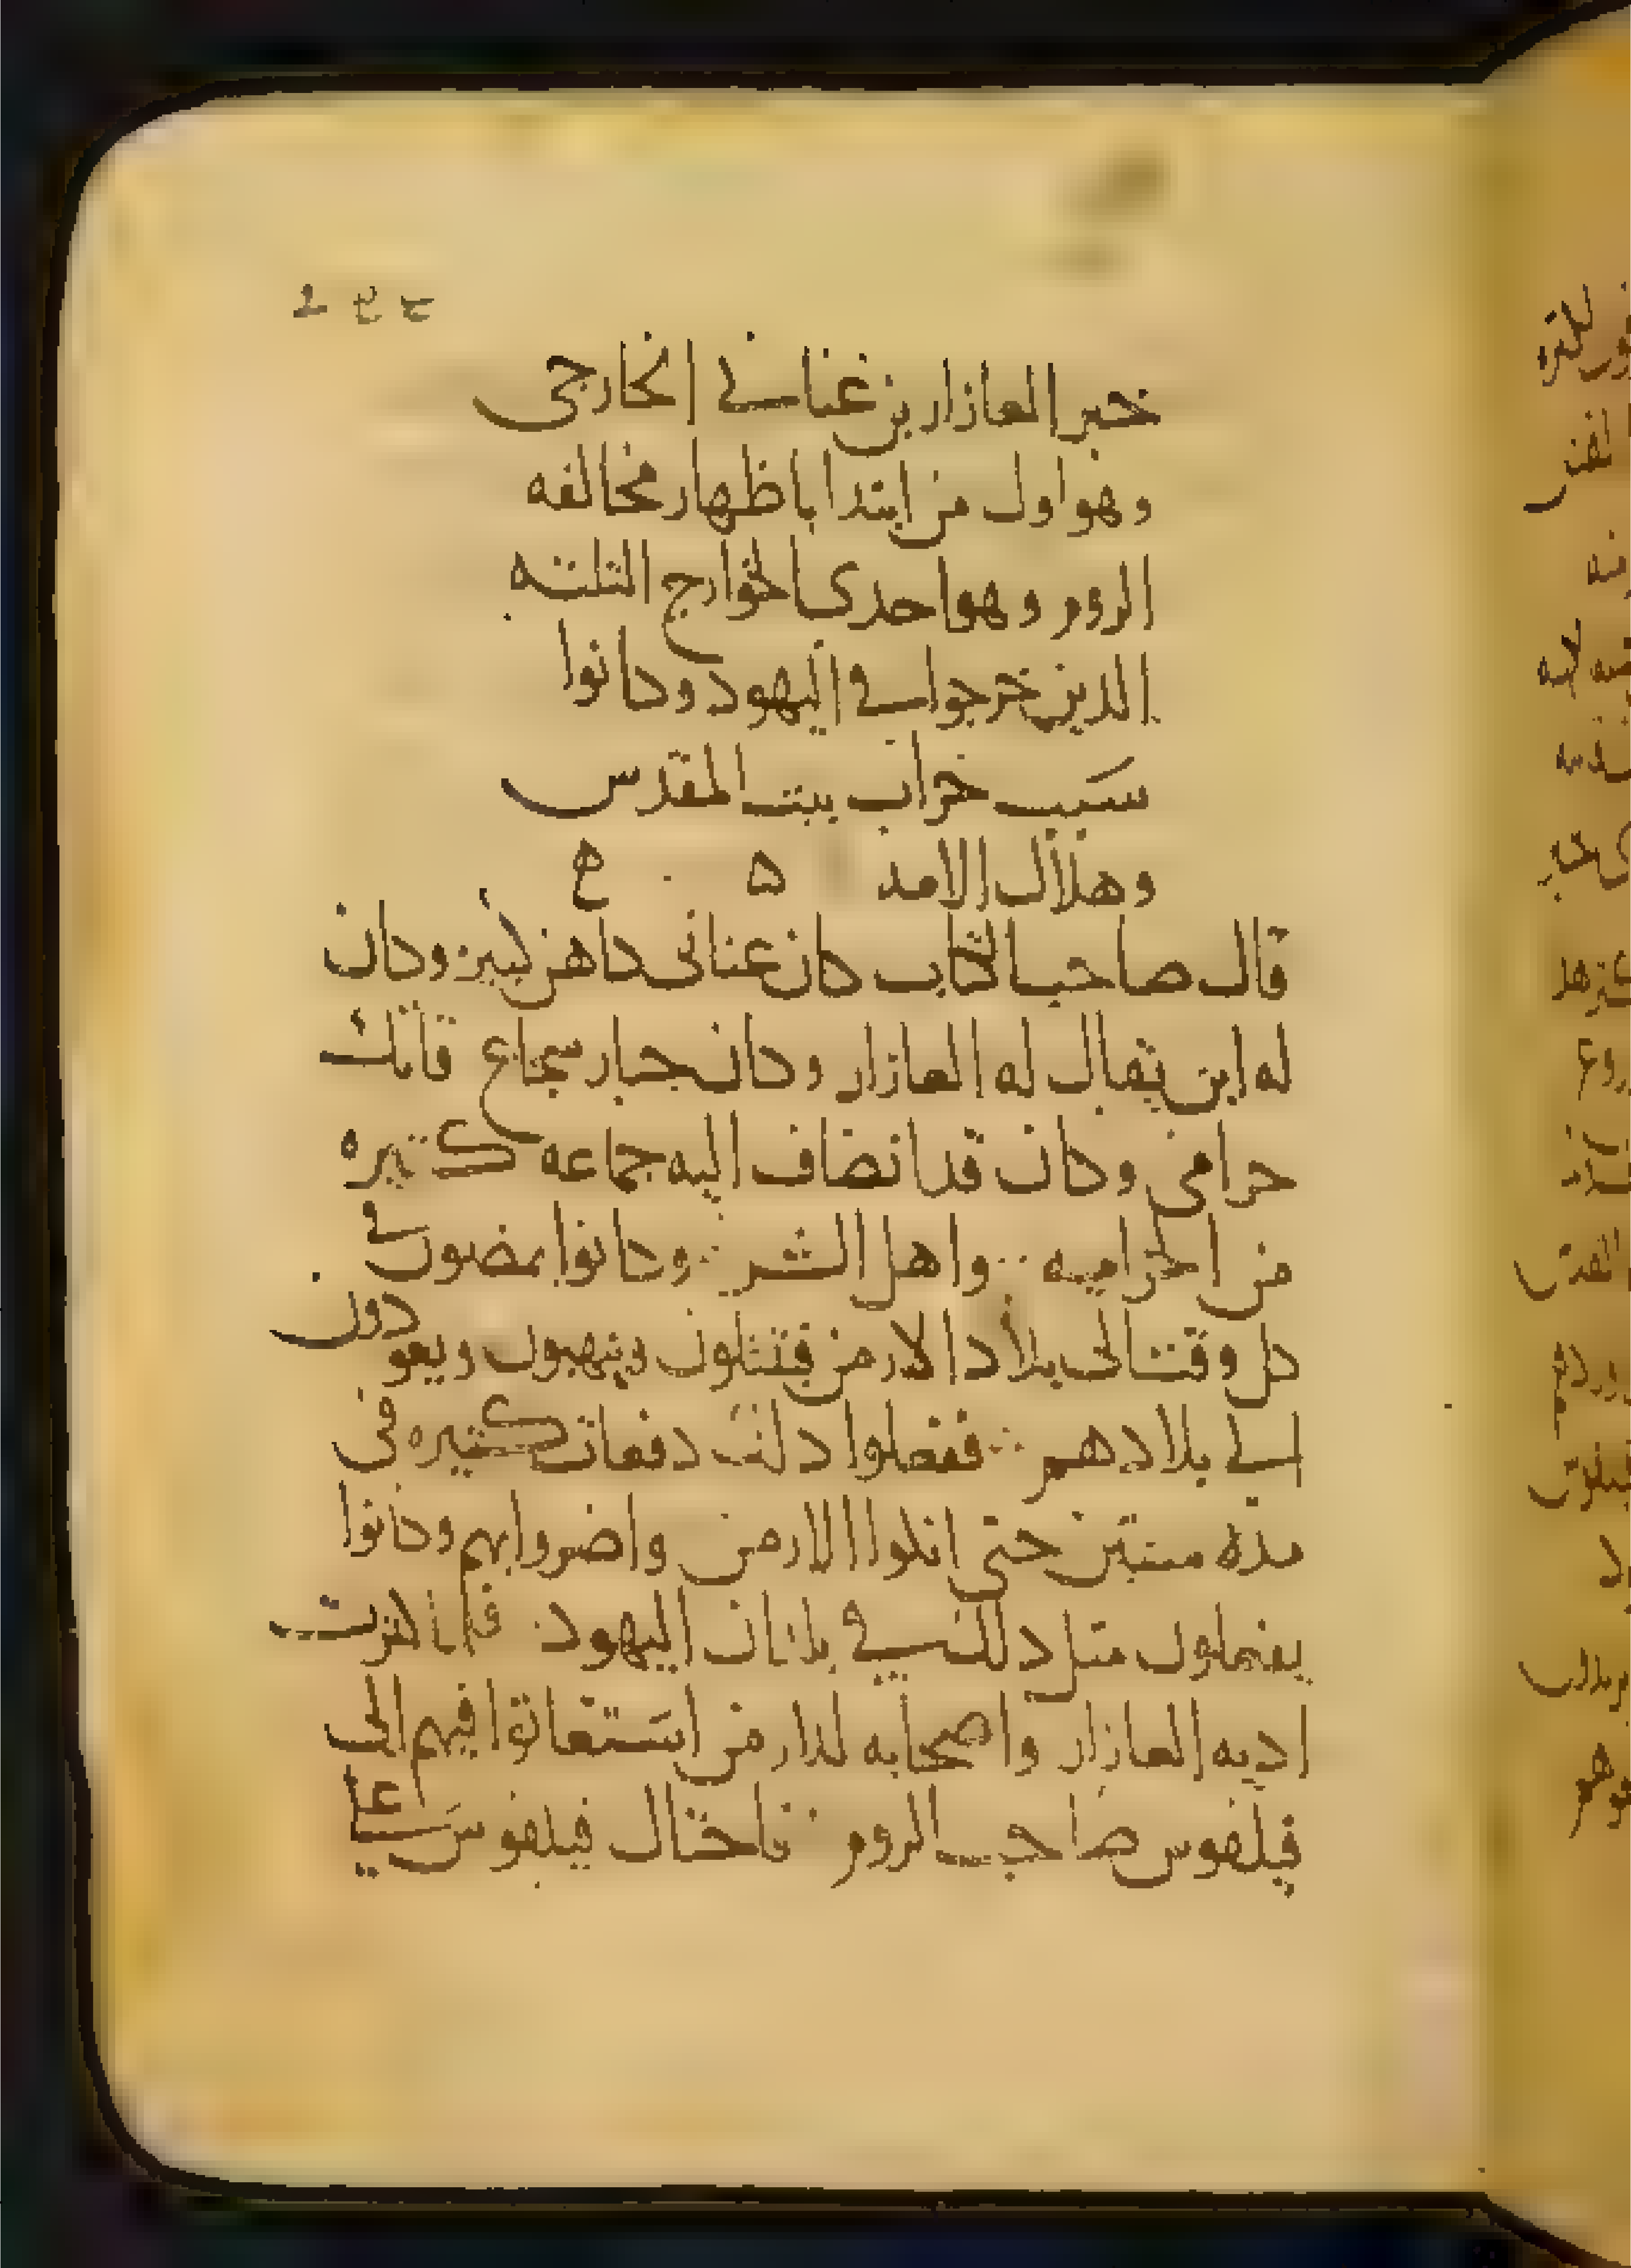 خبر العازار بن عناني الخارجي
وهو اول من ابتدا باظهار مخالفه
الروم وهو احدى الخوارج الثلثه
الذين خرجوا في اليهود وكانوا
سبب خراب بيت المقدس
وهلاك الامه ه
قال صاحب الكتاب كان عناني كاهن كبير وكان
له ابن يقال له العازار وكان جبار شجاع فاتك
حرامي وكان قد انضاف اليه جماعه كثيره
من الحراميه واهل الشر وكانوا يمضون في
كل وقت الى بلاد الارمن فيقتلون وينهبون ويعودون
الى بلادهم ففعلوا ذلك دفعات كثيره في
مده سنتين حتى انكوا الارمن واضروا بهم وكانوا
يفعلون مثل ذلك في بلدان اليهود فلما كثرت
اذيه العازار واصحابه للارمن استغاثوا فيهم الى
فيلقوس صاحب الروم فاحتال فيلقوس على